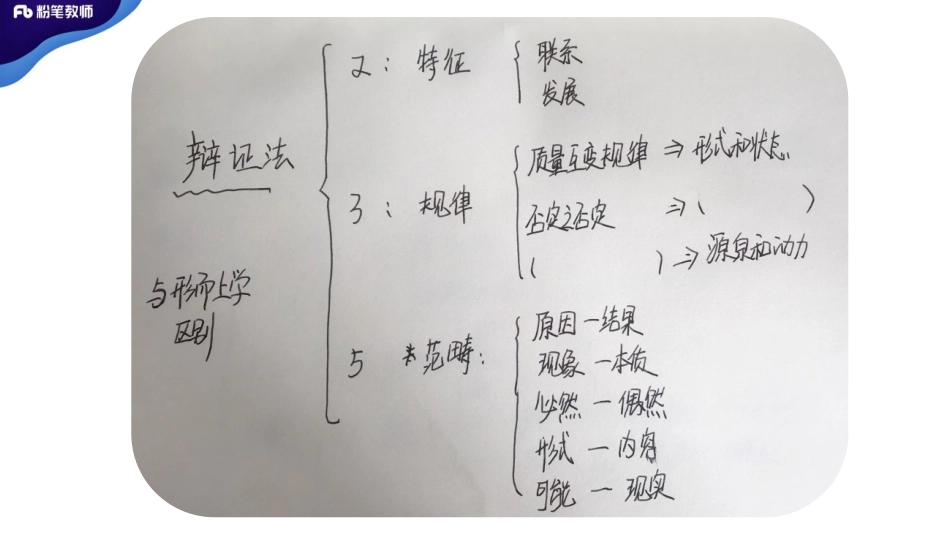 粉笔教师
辩证法
与形而上学
区别
2: 特征
联系
发展
3: 规律
质量互变规律 ⇒ 形式和状态
否定之否定 ⇒ ( )
( ) ⇒ 源泉和动力
5 *范畴:
原因—结果
现象—本质
必然—偶然
形式—内容
可能—现实